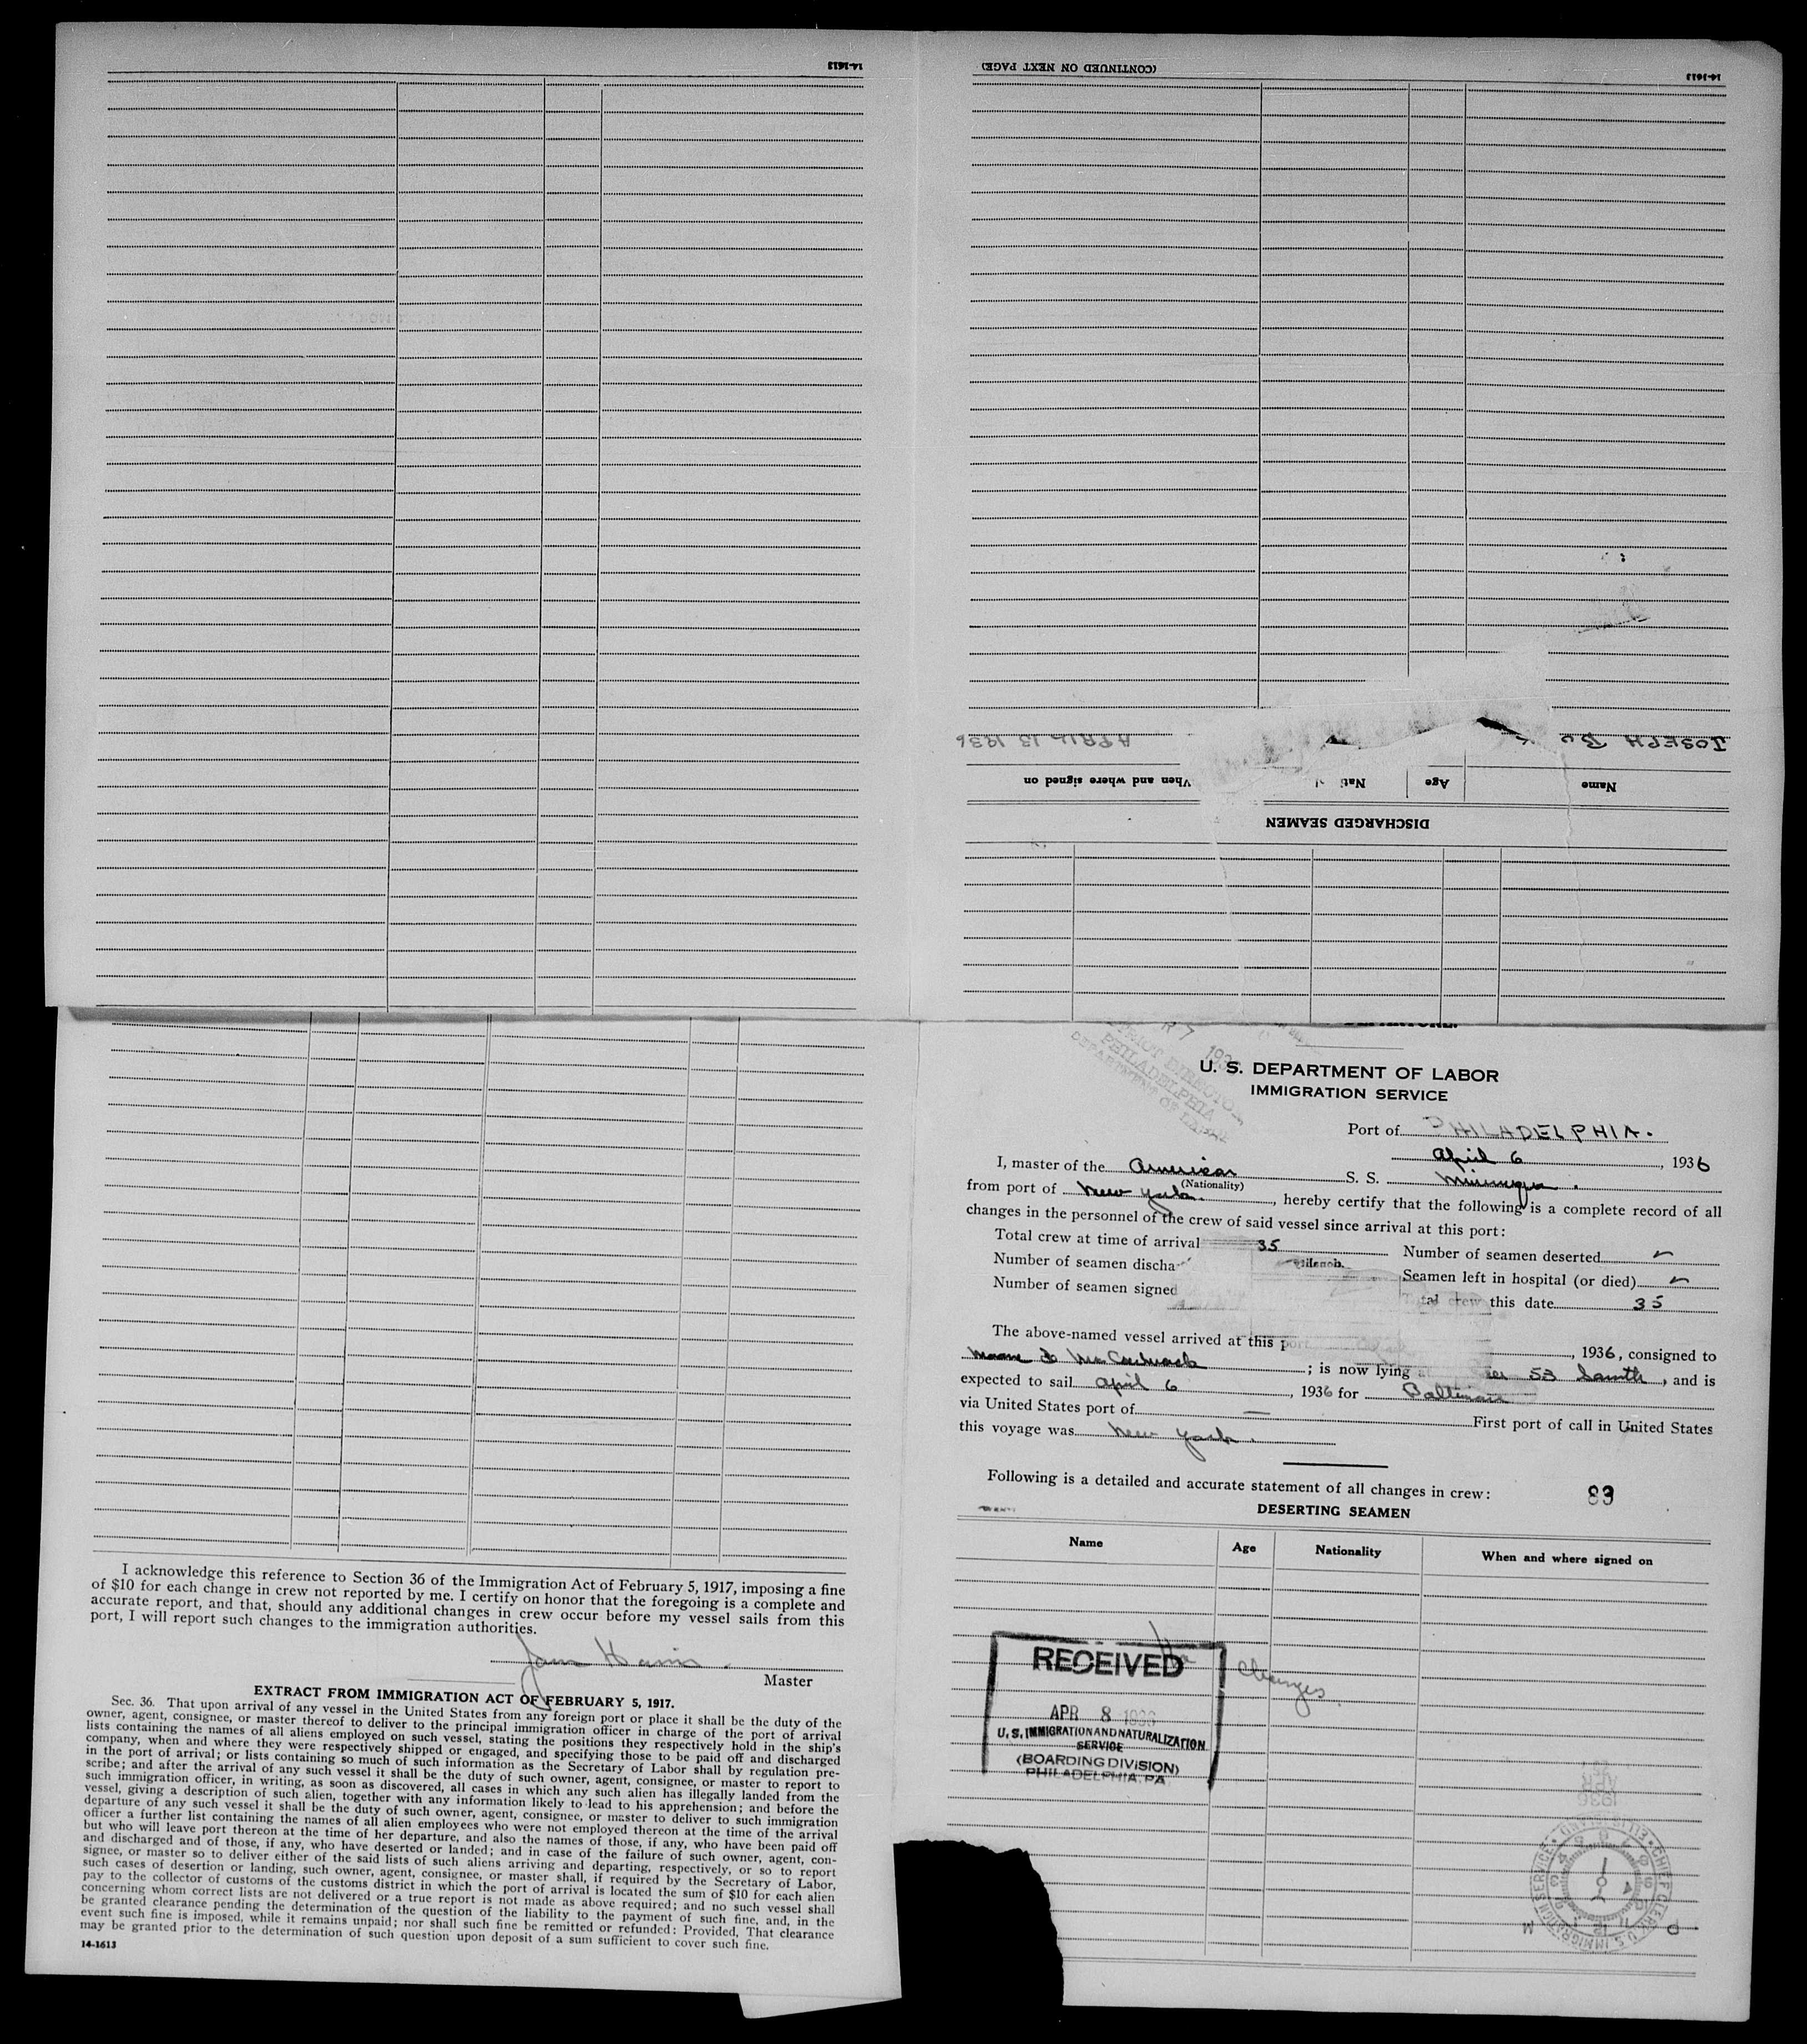 14-1613
(CONTINUED ON NEXT PAGE)
14-1613
JOSEPH
APRIL 13 1936
Name
Age
When and where signed on
DISCHARGED SEAMEN
PHILADELPHIA
U. S. DEPARTMENT OF LABOR
IMMIGRATION SERVICE
Port of PHILADELPHIA.
April 6, 1936
I, master of the American S. S.
(Nationality)
from port of New York., hereby certify that the following is a complete record of all
changes in the personnel of the crew of said vessel since arrival at this port:
Total crew at time of arrival 35 Number of seamen deserted
Number of seamen Seamen left in hospital (or died)
Number of seamen signed Total crew this date 35
The above-named vessel arrived at this port, 1936, consigned to
Moore & McCormack; is now lying 53 South, and is
expected to sail April 6, 1936 for Baltimore
via United States port of — First port of call in United States
this voyage was New York.
Following is a detailed and accurate statement of all changes in crew:
83
DESERTING SEAMEN
Name Age Nationality When and where signed on
No Changes.
RECEIVED
APR 8 1936
U. S. IMMIGRATION AND NATURALIZATION
SERVICE
(BOARDING DIVISION)
PHILADELPHIA, PA
I acknowledge this reference to Section 36 of the Immigration Act of February 5, 1917, imposing a fine
of $10 for each change in crew not reported by me. I certify on honor that the foregoing is a complete and
accurate report, and that, should any additional changes in crew occur before my vessel sails from this
port, I will report such changes to the immigration authorities.
Master
EXTRACT FROM IMMIGRATION ACT OF FEBRUARY 5, 1917.
Sec. 36. That upon arrival of any vessel in the United States from any foreign port or place it shall be the duty of the
owner, agent, consignee, or master thereof to deliver to the principal immigration officer in charge of the port of arrival
lists containing the names of all aliens employed on such vessel, stating the positions they respectively hold in the ship's
company, when and where they were respectively shipped or engaged, and specifying those to be paid off and discharged
in the port of arrival; or lists containing so much of such information as the Secretary of Labor shall by regulation pre-
scribe; and after the arrival of any such vessel it shall be the duty of such owner, agent, consignee, or master to report to
such immigration officer, in writing, as soon as discovered, all cases in which any such alien has illegally landed from the
vessel, giving a description of such alien, together with any information likely to lead to his apprehension; and before the
departure of any such vessel it shall be the duty of such owner, agent, consignee, or master to deliver to such immigration
officer a further list containing the names of all alien employees who were not employed thereon at the time of the arrival
but who will leave port thereon at the time of her departure, and also the names of those, if any, who have been paid off
and discharged and of those, if any, who have deserted or landed; and in case of the failure of such owner, agent, con-
signee, or master so to deliver either of the said lists of such aliens arriving and departing, respectively, or so to report
such cases of desertion or landing, such owner, agent, consignee, or master shall, if required by the Secretary of Labor,
pay to the collector of customs of the customs district in which the port of arrival is located the sum of $10 for each alien
concerning whom correct lists are not delivered or a true report is not made as above required; and no such vessel shall
be granted clearance pending the determination of the question of the liability to the payment of such fine, and, in the
event such fine is imposed, while it remains unpaid; nor shall such fine be remitted or refunded: Provided, That clearance
may be granted prior to the determination of such question upon deposit of a sum sufficient to cover such fine.
14-1613